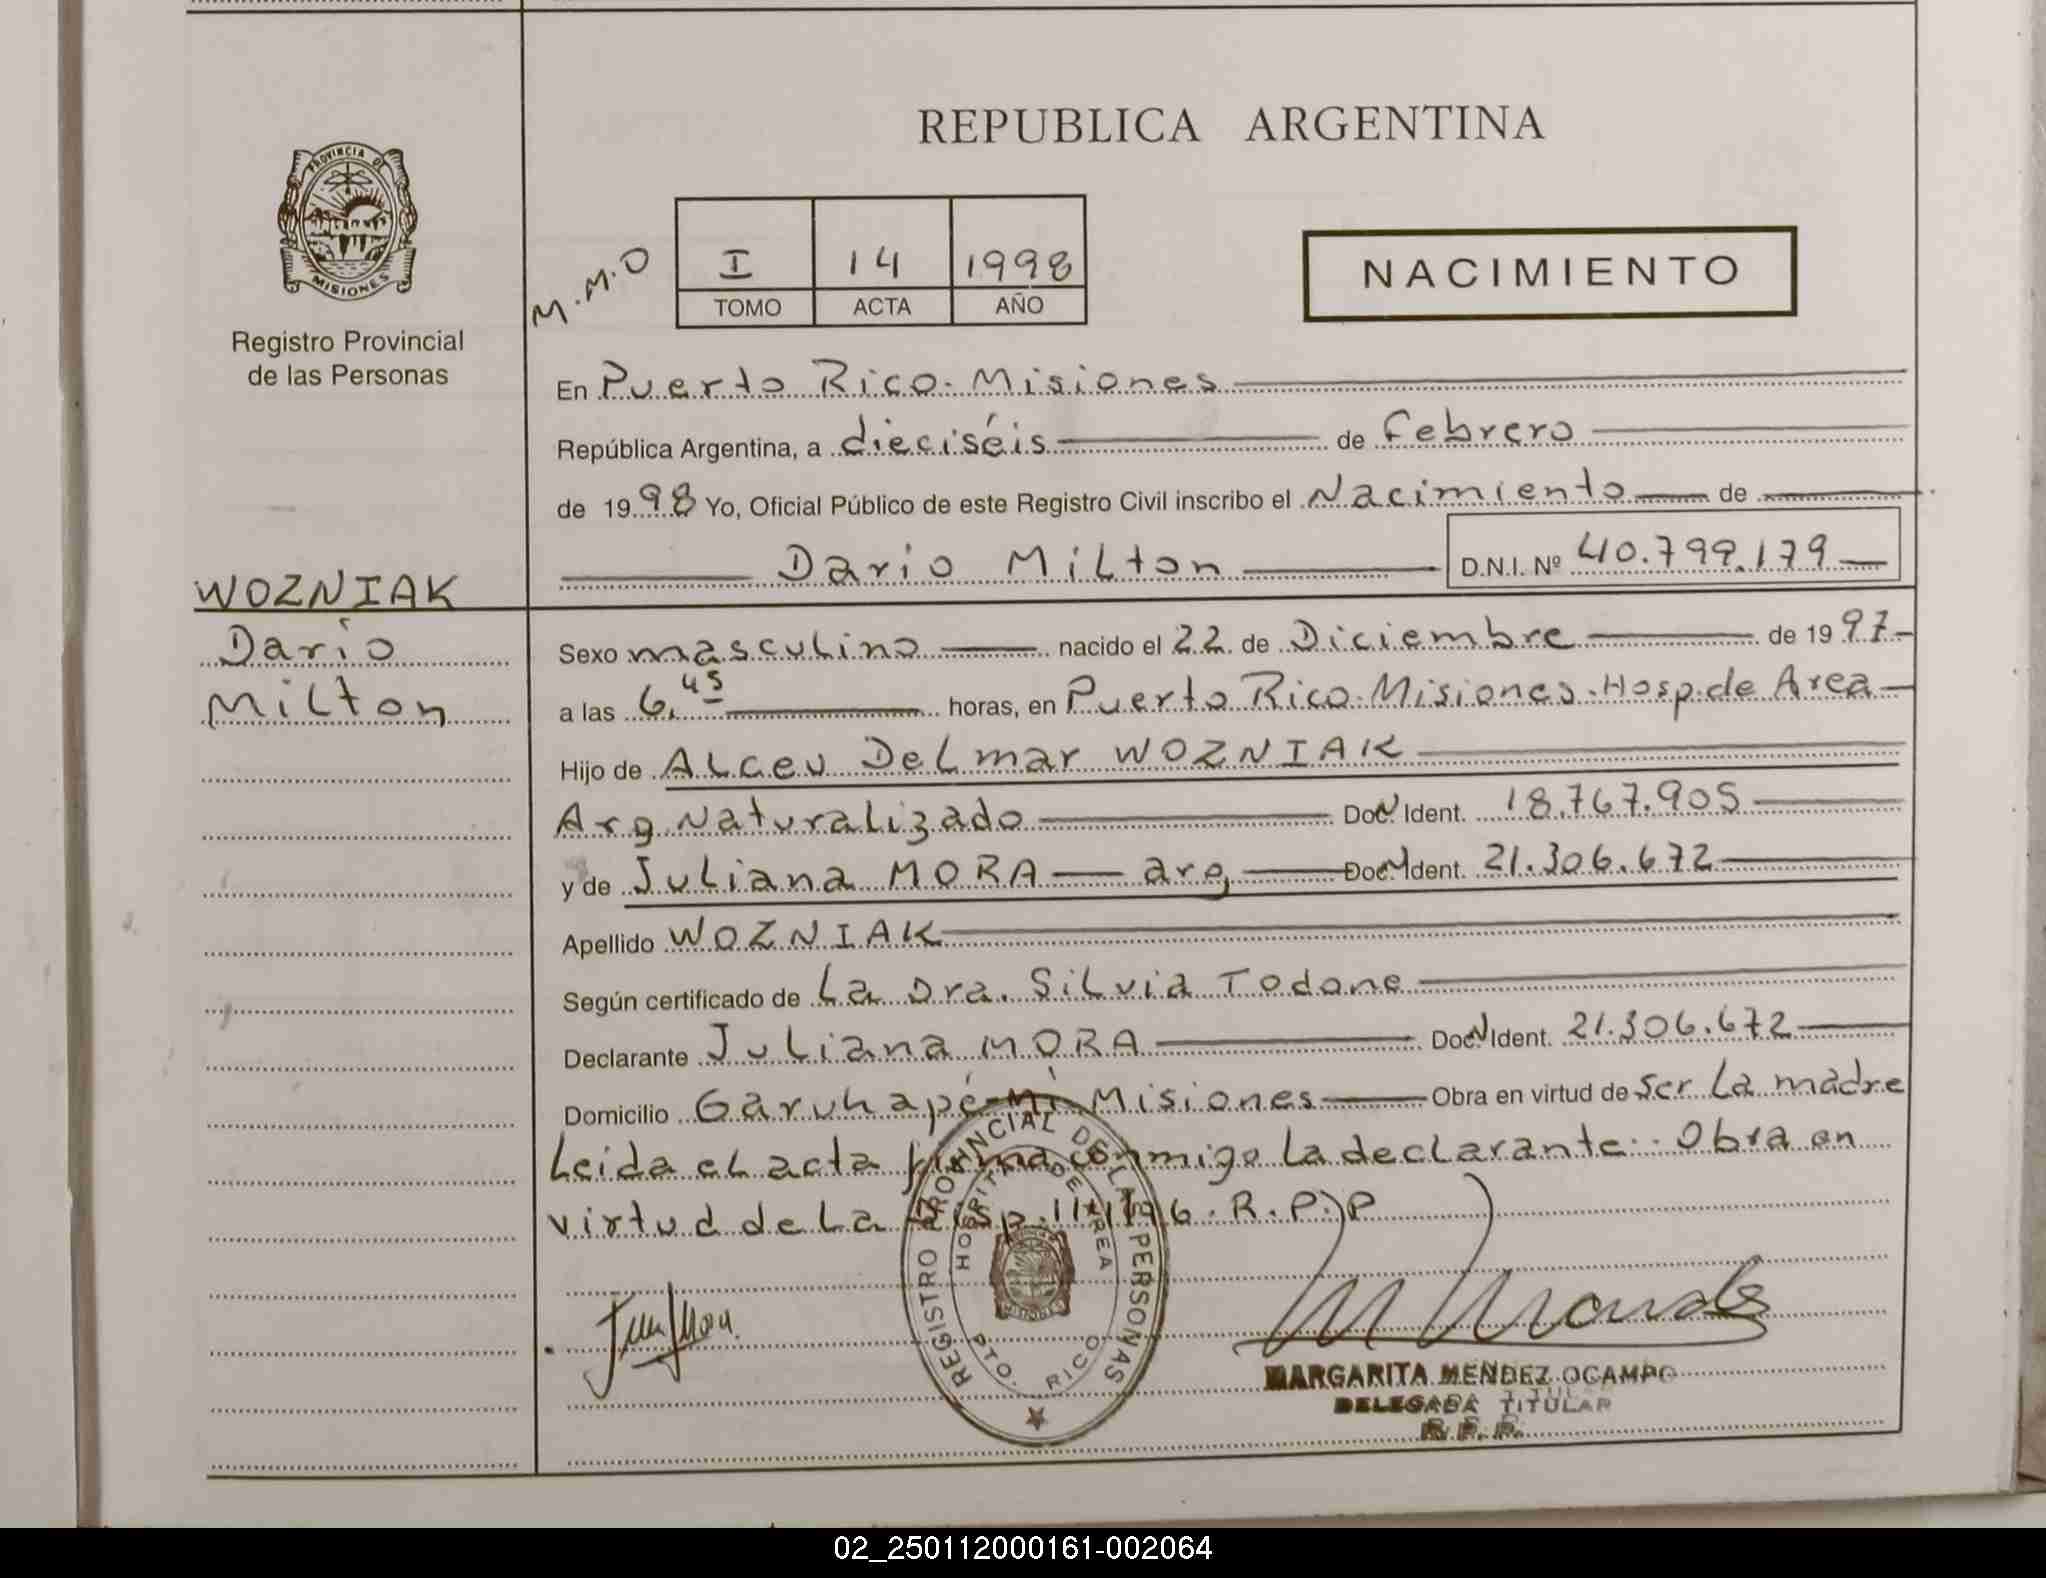 REPUBLICA ARGENTINA
PROVINCIA DE
MISIONES
Registro Provincial
de las Personas
M.M.O
I 14 1998
TOMO ACTA AÑO
NACIMIENTO
En Puerto Rico. Misiones
República Argentina, a dieciséis de Febrero
de 1998 Yo, Oficial Público de este Registro Civil inscribo el Nacimiento de
Dario Milton D.N.I. Nº 40.799.179
WOZNIAK
Dario
Milton
Sexo masculino nacido el 22 de Diciembre de 1997
a las 6,45 horas, en Puerto Rico. Misiones. Hosp. de Area
Hijo de Alceu Delmar WOZNIAK
Arg Naturalizado Doc. Ident. 18.767.905
y de Juliana MORA arg Doc. Ident. 21.306.672
Apellido WOZNIAK
Según certificado de La Dra. Silvia Todone
Declarante Juliana MORA Doc. Ident. 21.306.672
Domicilio Garuhapé-Mí Misiones Obra en virtud de ser la madre
Leida el acta firma conmigo la declarante. Obra en
virtud de la Disp. 11/96. R.P.P
REGISTRO PROVINCIAL DE LAS PERSONAS
HOSPITAL DE AREA
MISIONES
PTO. RICO
MARGARITA MENDEZ OCAMPO
DELEGADA TITULAR
R.P.P.
02_250112000161-002064